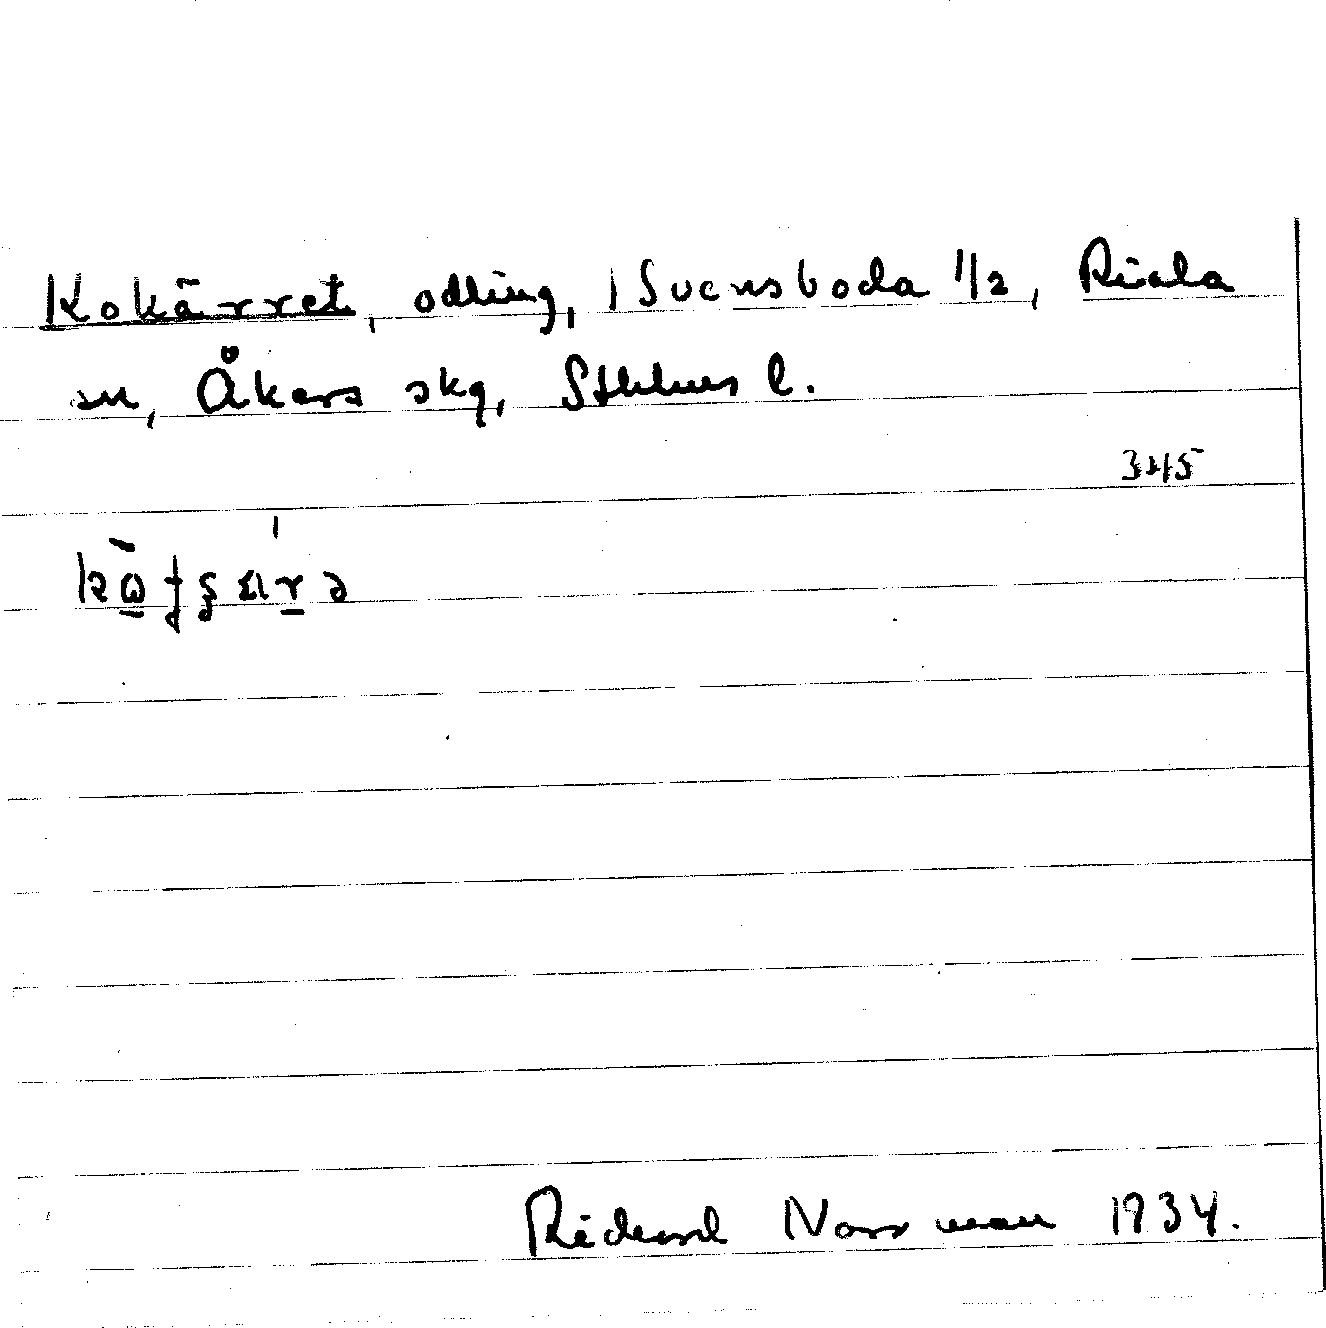 Kokärret, odling, i Svensboda 1/2, Riala
sn, Åkers skg, Sthlms l.
345
Rickard Norrman 1934.